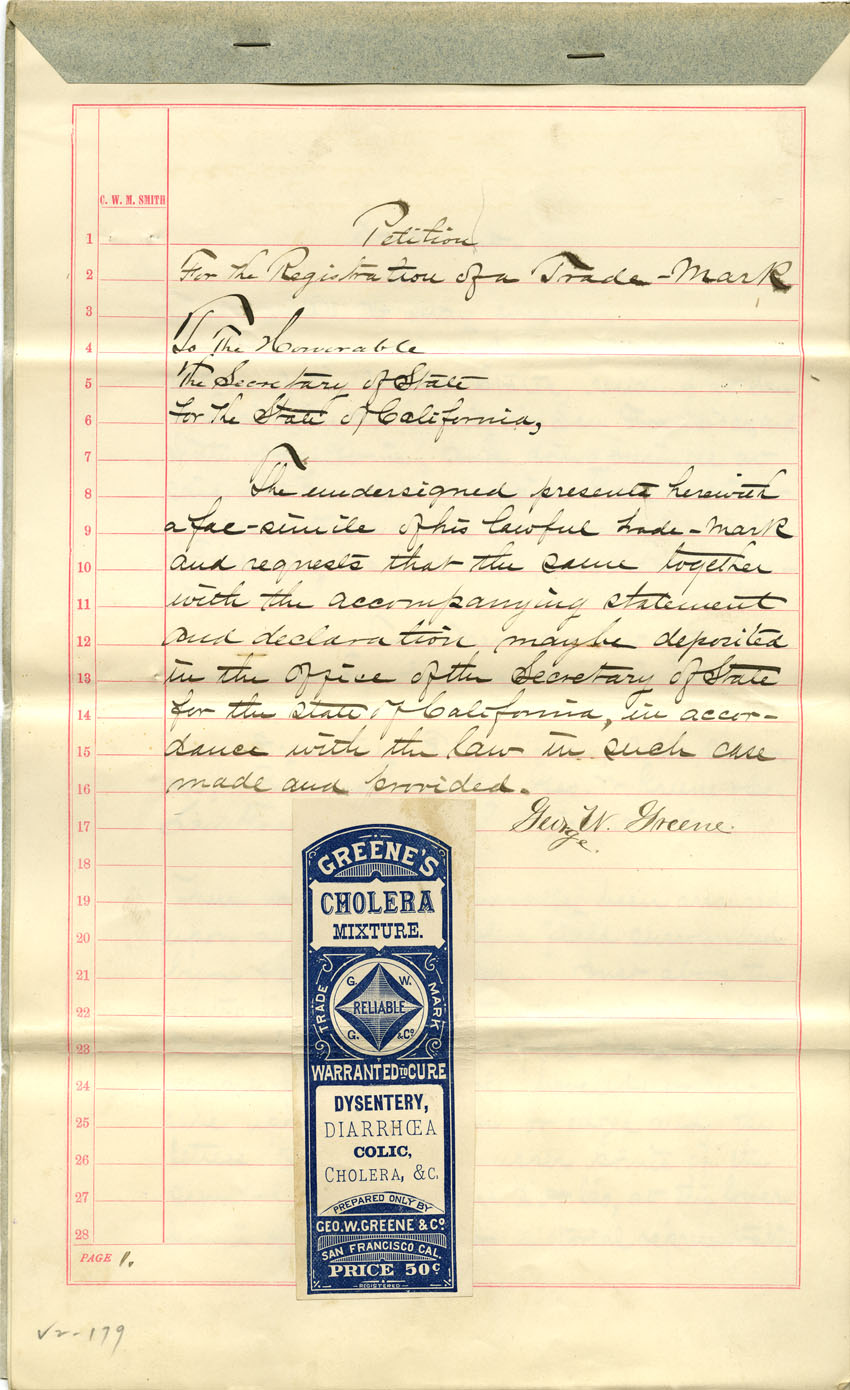 C. W. M. SMITH
1 Petition
2 For the Registration of a Trade-Mark
3
4 To The Honorable
5 The Secretary of State
6 for the State of California,
7
8 The undersigned presents herewith
9 a fac-simile of his lawful trade-mark
10 and requests that the same together
11 with the accompanying statement
12 and declaration may be deposited
13 in the office of the Secretary of State
14 for the state of California, in accor-
15 dance with the law in such case
16 made and provided.
17 George W. Greene.
18
19
20
21
22
23
24
25
26
27
28
GREENE'S
CHOLERA
MIXTURE.
TRADE MARK
G. W.
RELIABLE
G. & Co
WARRANTED TO CURE
DYSENTERY,
DIARRHŒA
COLIC,
CHOLERA, &C.
PREPARED ONLY BY
GEO. W. GREENE & Co
SAN FRANCISCO CAL.
PRICE 50c
REGISTERED
PAGE 1.